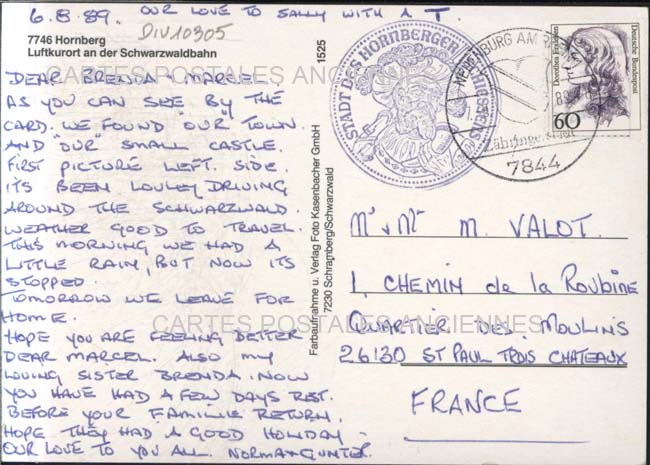 6.8.89. OUR LOVE TO SALLY WITH A T.
DIV10905
7746 Hornberg
Luftkurort an der Schwarzwaldbahn
DEAR BRENDA MARCEL
AS YOU CAN SEE BY THE
CARD. WE FOUND "OUR" TOWN
AND "OUR" SMALL CASTLE.
FIRST PICTURE LEFT. SIDE.
ITS BEEN LOVLEY DRIVING
AROUND THE SCHWARZWALD.
WEATHER GOOD TO TRAVEL.
THIS MORNING WE HAD A
LITTLE RAIN, BUT NOW ITS
STOPPED.
TOMORROW WE LEAVE FOR
HOME.
HOPE YOU ARE FEELING BETTER
DEAR MARCEL. ALSO MY
LOVING SISTER BRENDA. NOW
YOU HAVE HAD A FEW DAYS REST.
BEFORE YOUR FAMILIE RETURN.
HOPE THEY HAD A GOOD HOLIDAY -
OUR LOVE TO YOU ALL. NORMA+GUNTER.
1525
Farbaufnahme u. Verlag Foto Kasenbacher GmbH
7230 Schramberg/Schwarzwald
STADT DES HORNBERGER SCHIESSENS
NEUENBURG AM
7844
Dorothea Erxleben
Deutsche Bundespost
60
Mr & Mme M. VALOT.
1, CHEMIN de la Roubine
QUARTIER DES MOULINS
26130 ST PAUL TROIS CHATEAUX
FRANCE
CARTES POSTALES ANCIENNES
CARTES POSTALES ANCIENNES